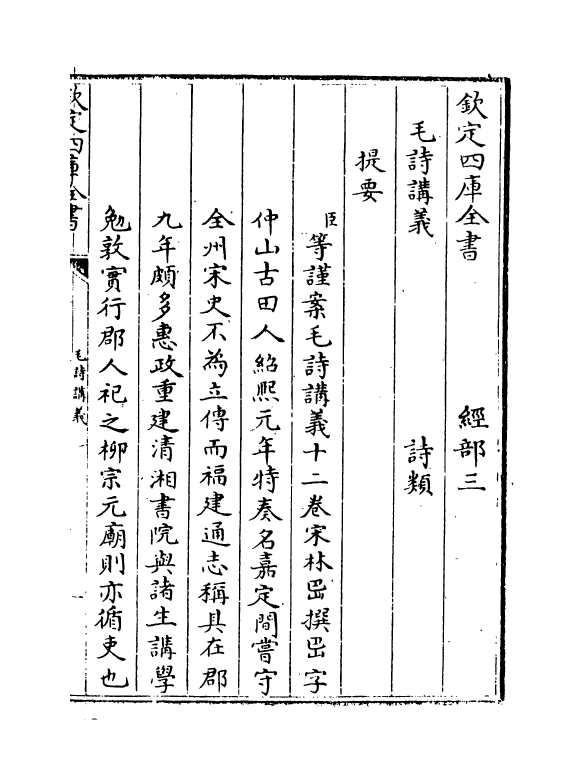 欽定四庫全書　　經部三
毛詩講義　　詩類
提要
臣等謹案毛詩講義十二卷宋林岊撰岊字
仲山古田人紹熙元年特奏名嘉定間嘗守
全州宋史不為立傳而福建通志稱其在郡
九年頗多惠政重建清湘書院與諸生講學
勉敦實行郡人祀之柳宗元廟則亦循吏也
欽定四庫全書　毛詩講義　一